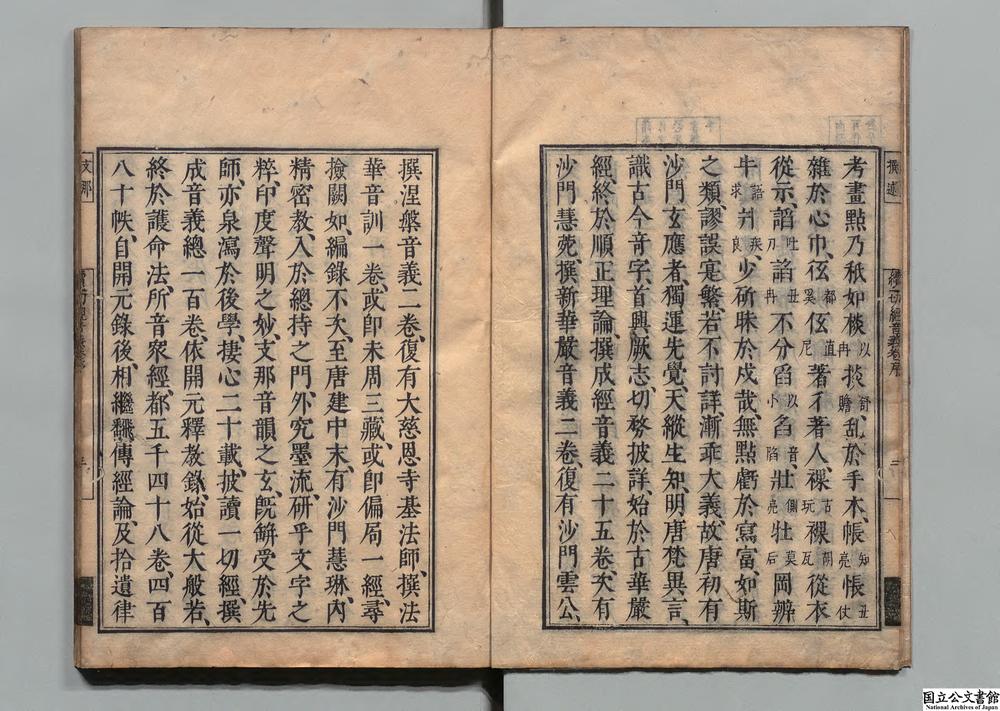 撰述
續一切經音義卷序
三
考畫點乃秖如棪以冉掞舒贍亂於手木、帳知亮帳丑仗
雜於心巾、彽都奚伭值尼著彳著人、祼古玩裸胡瓦從衣
從示、謟吐刀諂丑冉不分舀以小臽音陷、壯側亮牡莫后罔辨
牛語求爿疾良、少斫昧於戍哉、無點虧於寫富、如斯
之類、謬誤寔繁、若不討詳、漸乖大義、故唐初有
沙門玄應者、獨運先覺、天縱生知、明唐梵異言、
識古今音字、首興厥志、切務披詳、始於古華嚴
經、終於順正理論、撰成經音義二十五卷、次有
沙門慧菀、撰新華嚴音義二卷、復有沙門雲公、
撰涅槃音義二卷、復有大慈恩寺基法師、撰法
華音訓一卷、或即未周三藏、或即偏局一經、尋
撿闕如、編錄不次、至唐建中末、有沙門慧琳、內
精密教、入於總持之門、外究墨流、研乎文字之
粹、印度聲明之妙、支那音韻之玄、既缾受於先
師、亦泉瀉於後學、捿心二十載、披讀一切經、撰
成音義總一百卷、依開元釋教錄、始從大般若、
終於護命法、所音眾經、都五千四十八卷、四百
八十帙、自開元錄後、相繼飜傳經論、及拾遺律
支那
国立公文書館
National Archives of Japan